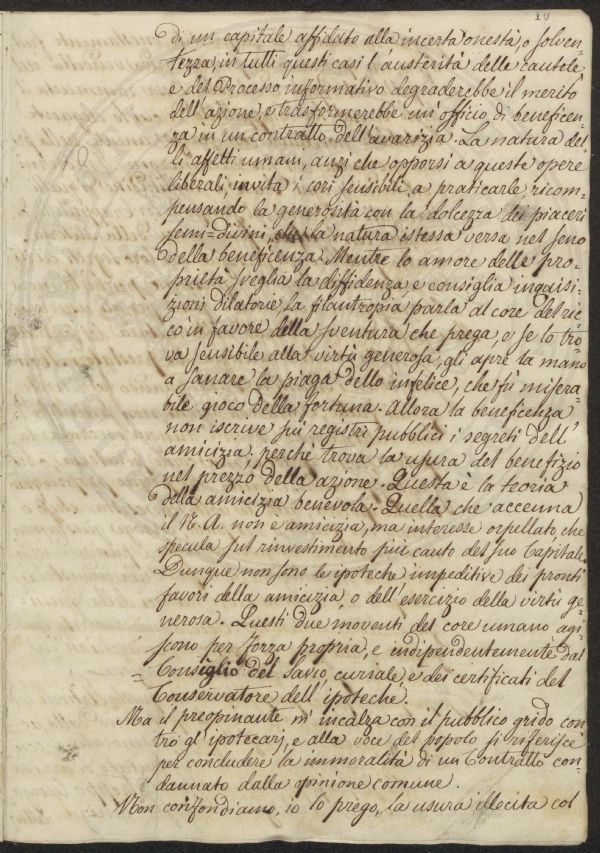 10
di un capitale affidato alla incerta onestà, o solven=
tezza; in tutti questi casi l'austerità delle cautele
e del Processo informativo degraderebbe il merito
dell'azione, e trasformerebbe un'officio di beneficen=
za in un contratto dell'avarizia. La natura del=
li affetti umani, anzi che opporsi a queste opere
liberali invita i cori sensibili a praticarle, ricom=
pensando la generosità con la dolcezza dei piaceri
semi=divini, che la natura istessa versa nel seno
della beneficenza. Mentre lo amore delle pro=
prietà sveglia la diffidenza e consiglia inquisi=
zioni dilatorie, la filantropia parla al core del ric=
co in favore della sventura che prega, e se lo tro=
va sensibile alla virtù generosa, gli apre la mano
a sanare la piaga dello infelice, che fù misera=
bile gioco della fortuna. Allora la beneficenza
non iscrive sui registri pubblici i segreti dell'
amicizia, perchè trova la usura del benefizio
nel prezzo della azione. Questa è la teoria
della amicizia benevola. Quella che accenna
il N. A. non è amicizia, ma interesse orpellato, che
specula sul rinvestimento più cauto del suo Capitale.
Dunque non sono le ipoteche impeditive dei pronti
favori della amicizia o dell'esercizio della virtù ge=
nerosa. Questi due moventi del core umano agi=
scono per forza propria, e indipendentemente dal
Consiglio del Savio curiale, e dei certificati del
= Conservatore dell'ipoteche.
Ma il preopinante m'incalza con il pubblico grido con=
tro gl'ipotecarj, e alla voce del popolo si riferisce
per concludere la immoralità di un Contratto con=
dannato dalla opinione comune.
Non confondiamo, io lo prego, la usura illecita col